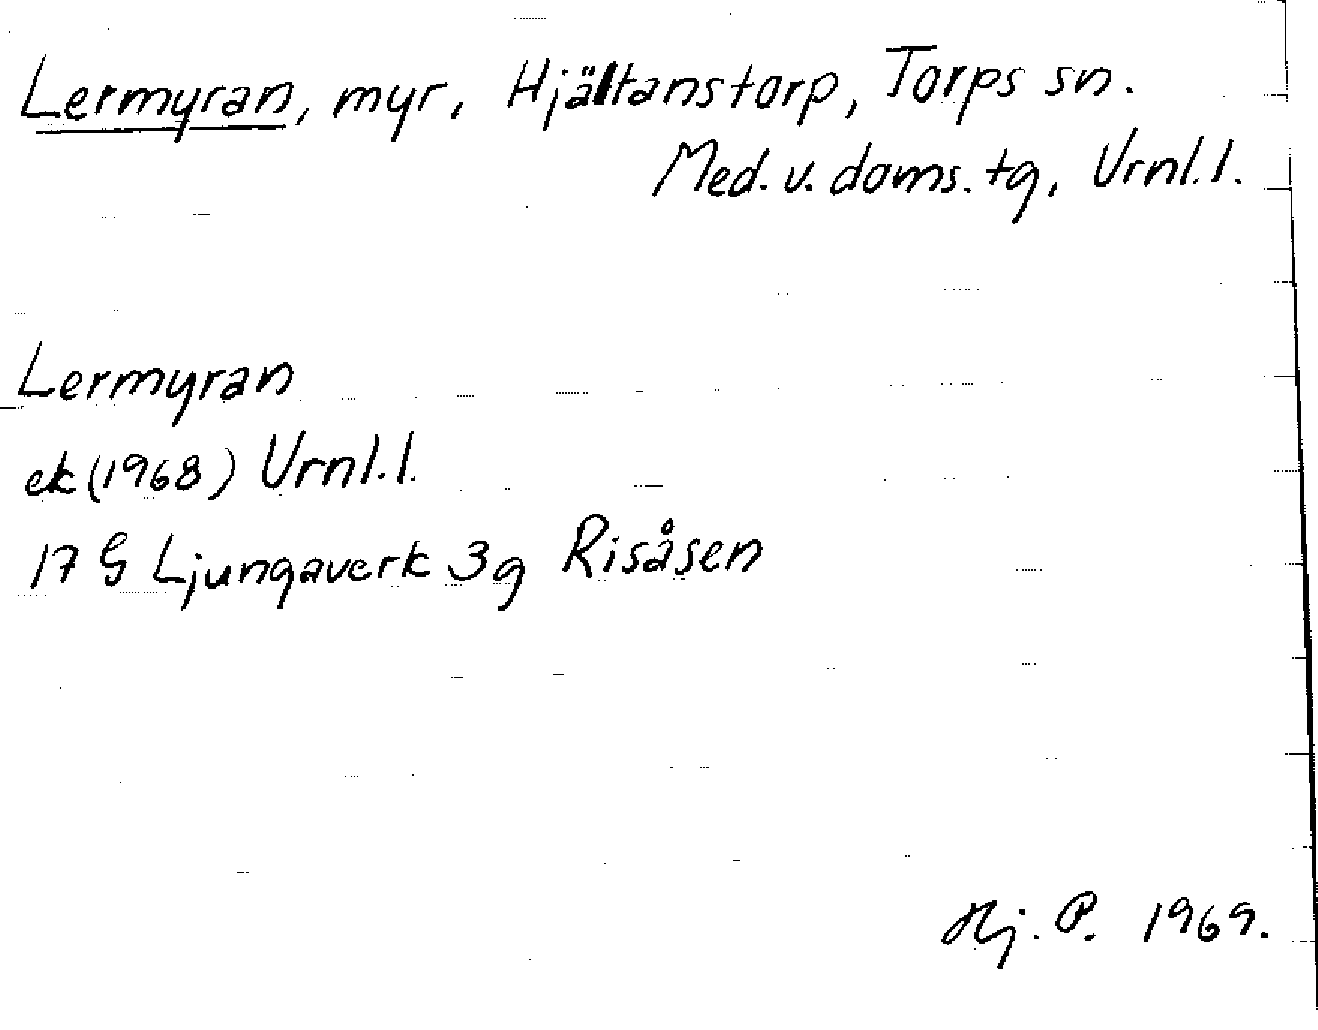 Lermyran, myr, Hjältanstorp, Torps sn.
Med. v. doms. tg, Urnl. l.
Lermyran
ek (1968) Urnl. l.
17 G Ljungaverk 3g Risåsen
Hj. P. 1969.